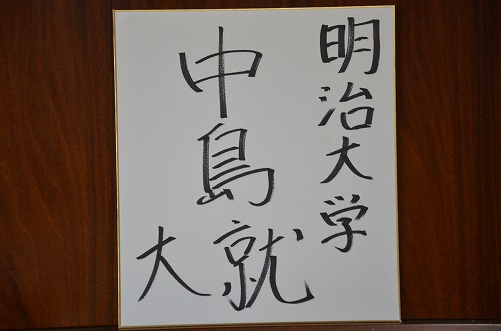 明治大学
中島就
大